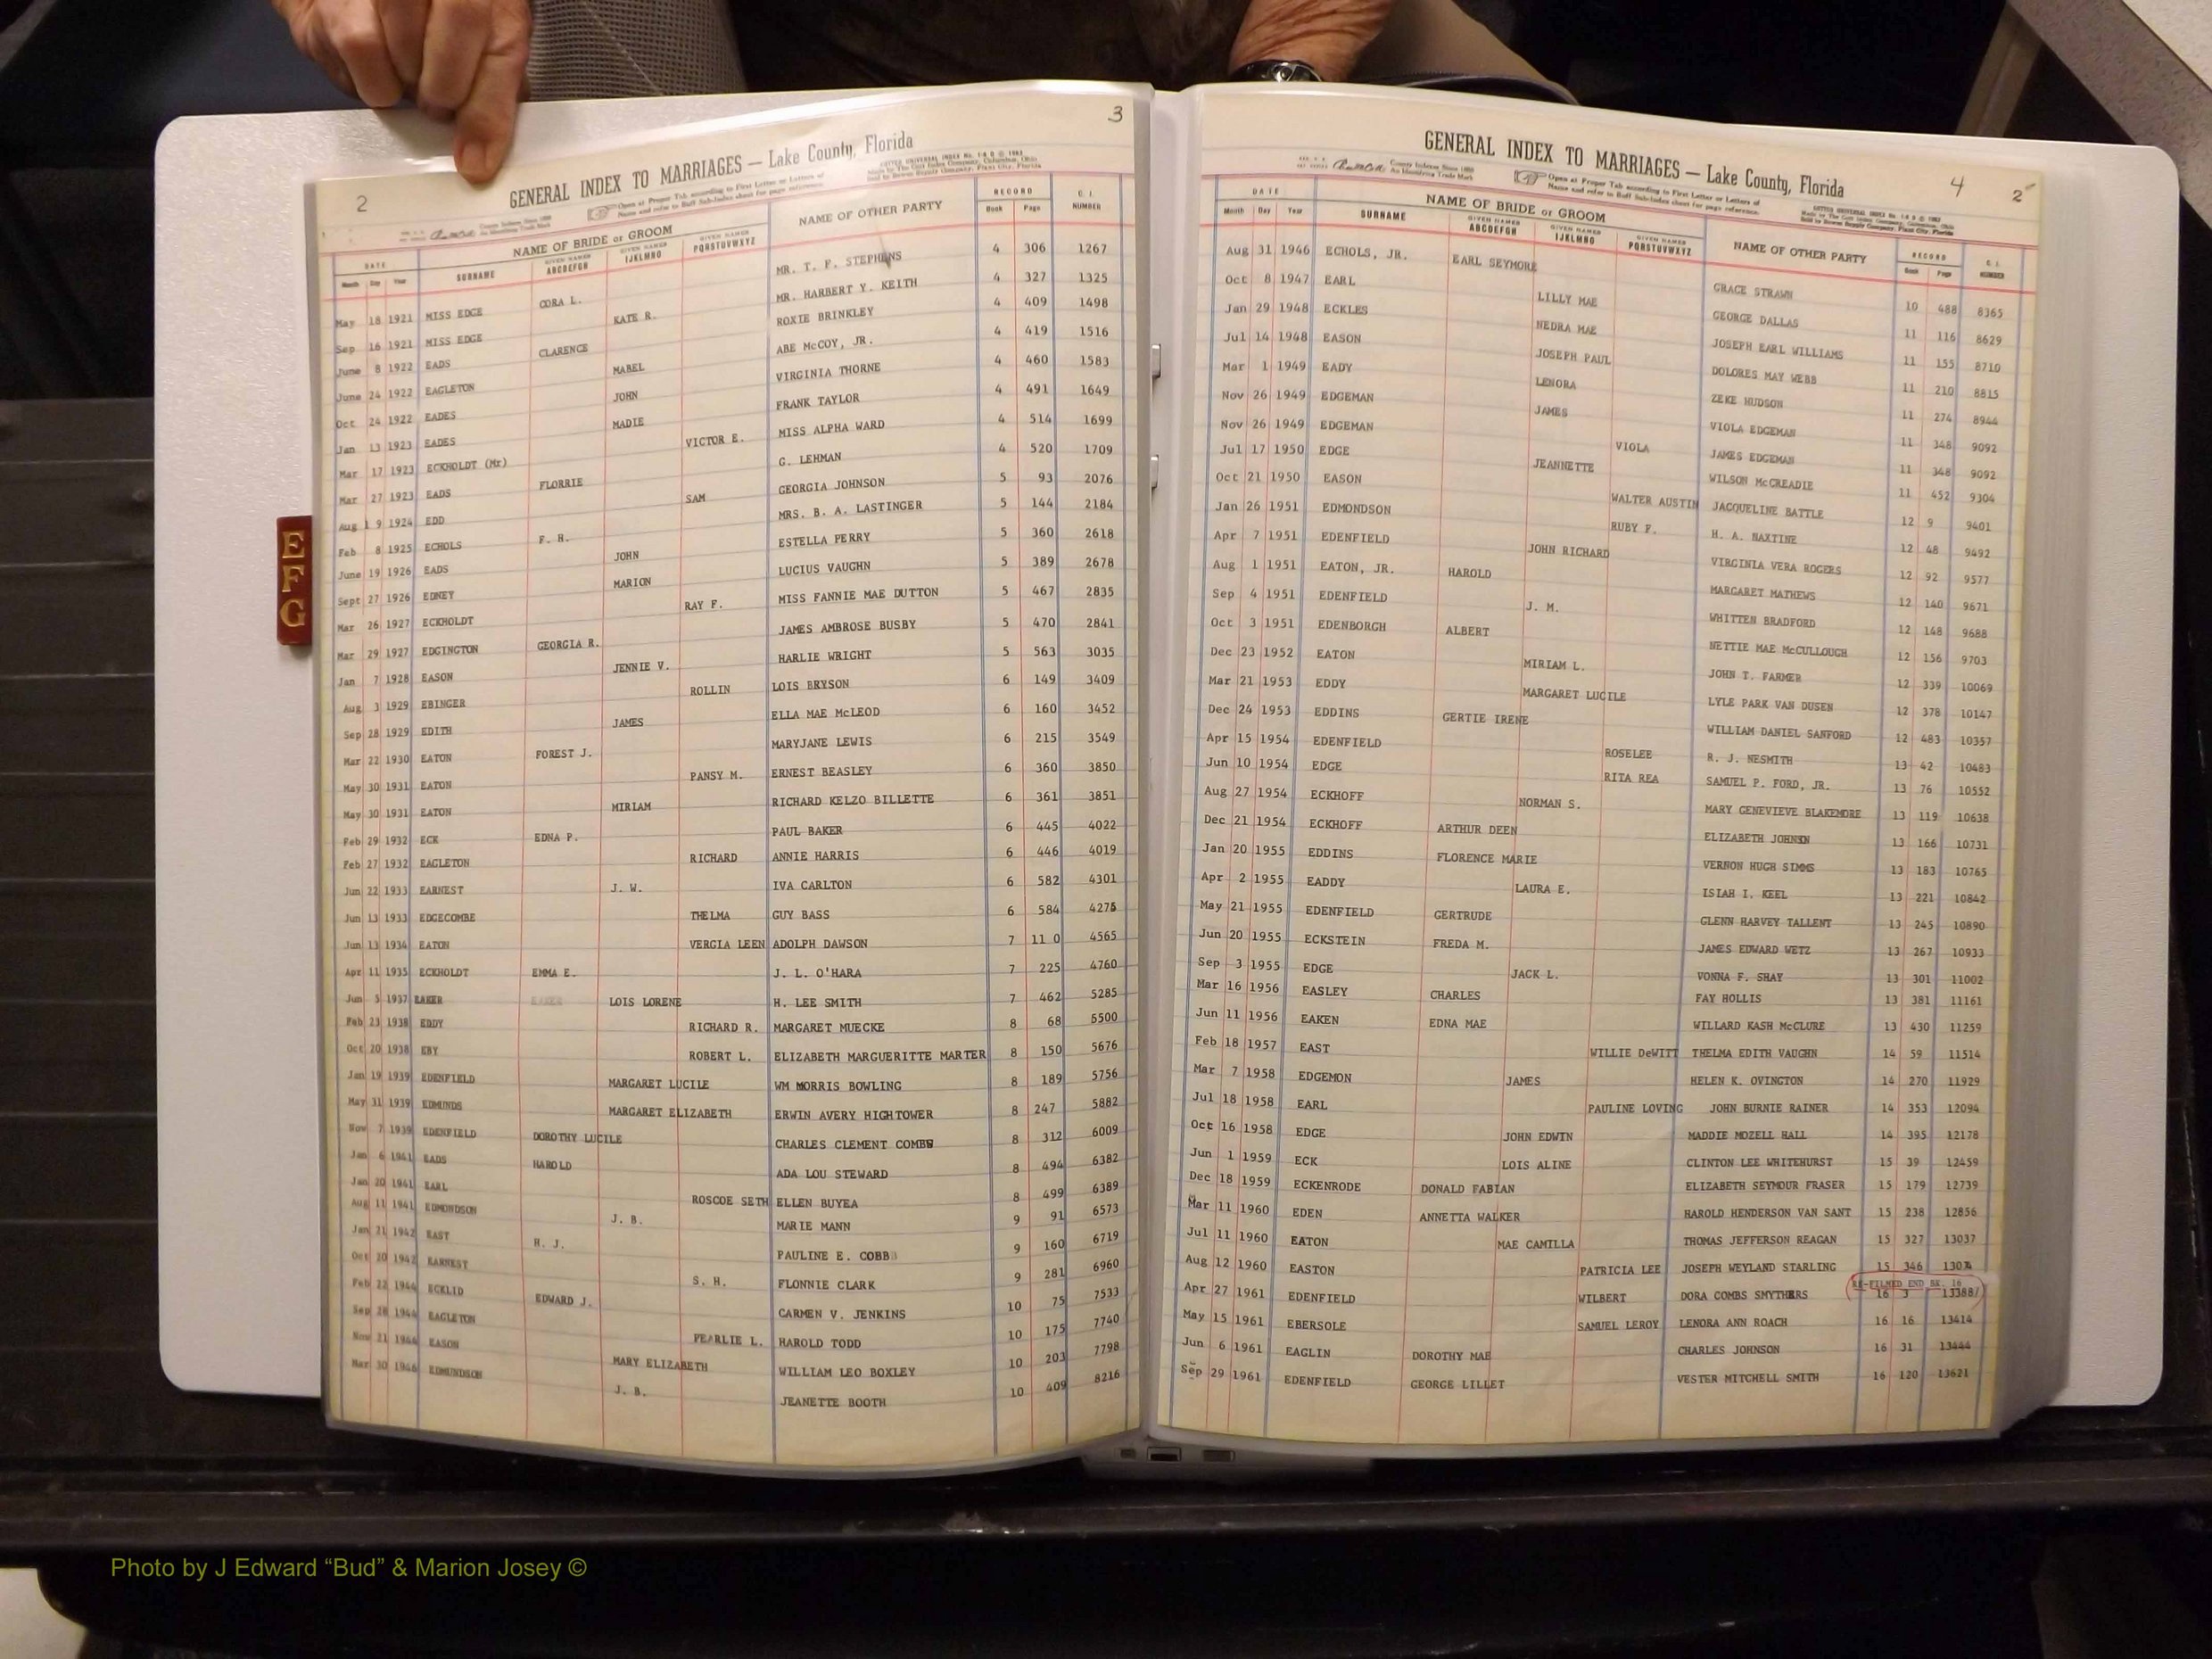 3
2
GENERAL INDEX TO MARRIAGES — Lake County, Florida
Open at Proper Tab according to First Letter or Letters of
Name and refer to Buff Sub-Index sheet for page reference.
COTT'S UNIVERSAL INDEX
Made by The Cott Index Company, Columbus, Ohio
Sold by Bowen Supply Company, Plant City, Florida
DATE NAME OF BRIDE or GROOM NAME OF OTHER PARTY RECORD C. I. NUMBER
Month Day Year SURNAME GIVEN NAMES ABCDEFGH GIVEN NAMES IJKLMNO GIVEN NAMES PQRSTUVWXYZ Book Page
May 18 1921 MISS EDGE CORA L. MR. T. F. STEPHENS 4 306 1267
Sep 16 1921 MISS EDGE KATE R. MR. HARBERT Y. KEITH 4 327 1325
June 8 1922 EADS CLARENCE ROXIE BRINKLEY 4 409 1498
June 24 1922 EAGLETON MABEL ABE McCOY, JR. 4 419 1516
Oct 24 1922 EADES JOHN VIRGINIA THORNE 4 460 1583
Jan 13 1923 EADES MADIE FRANK TAYLOR 4 491 1649
Mar 17 1923 ECKHOLDT (Mr) VICTOR E. MISS ALPHA WARD 4 514 1699
Mar 27 1923 EADS FLORRIE G. LEHMAN 4 520 1709
Aug 19 1924 EDD SAM GEORGIA JOHNSON 5 93 2076
Feb 8 1925 ECHOLS F. H. MRS. B. A. LASTINGER 5 144 2184
June 19 1926 EADS JOHN ESTELLA PERRY 5 360 2618
Sept 27 1926 EDNEY MARION LUCIUS VAUGHN 5 389 2678
Mar 26 1927 ECKHOLDT RAY F. MISS FANNIE MAE DUTTON 5 467 2835
Mar 29 1927 EDGINGTON GEORGIA R. JAMES AMBROSE BUSBY 5 470 2841
Jan 7 1928 EASON JENNIE V. HARLIE WRIGHT 5 563 3035
Aug 3 1929 EBINGER ROLLIN LOIS BRYSON 6 149 3409
Sep 28 1929 EDITH JAMES ELLA MAE McLEOD 6 160 3452
Mar 22 1930 EATON FOREST J. MARYJANE LEWIS 6 215 3549
May 30 1931 EATON PANSY M. ERNEST BEASLEY 6 360 3850
May 30 1931 EATON MIRIAM RICHARD KELZO BILLETTE 6 361 3851
Feb 29 1932 ECK EDNA P. PAUL BAKER 6 445 4022
Feb 27 1932 EAGLETON RICHARD ANNIE HARRIS 6 446 4019
Jun 22 1933 EARNEST J. W. IVA CARLTON 6 582 4301
Jun 13 1933 EDGECOMBE THELMA GUY BASS 6 584 4275
Jun 13 1934 EATON VERGIA LEEN ADOLPH DAWSON 7 11 0 4565
Apr 11 1935 ECKHOLDT EMMA E. J. L. O'HARA 7 225 4760
Jun 5 1937 EAKER LOIS LORENE H. LEE SMITH 7 462 5285
Feb 23 1938 EDDY RICHARD R. MARGARET MUECKE 8 68 5500
Oct 20 1938 EBY ROBERT L. ELIZABETH MARGUERITTE MARTER 8 150 5676
Jan 19 1939 EDENFIELD MARGARET LUCILE WM MORRIS BOWLING 8 189 5756
May 31 1939 EDMUNDS MARGARET ELIZABETH ERWIN AVERY HIGHTOWER 8 247 5882
Nov 7 1939 EDENFIELD DOROTHY LUCILE CHARLES CLEMENT COMBS 8 312 6009
Jan 6 1941 EADS HAROLD ADA LOU STEWARD 8 494 6382
Jan 20 1941 EARL ROSCOE SETH ELLEN BUYEA 8 499 6389
Aug 11 1941 EDMONDSON J. B. MARIE MANN 9 91 6573
Jan 21 1942 EAST H. J. PAULINE E. COBB 9 160 6719
Oct 20 1942 EARNEST S. H. FLONNIE CLARK 9 281 6960
Feb 22 1944 ECKLID EDWARD J. CARMEN V. JENKINS 10 75 7533
Sep 28 1944 EAGLETON PEARLIE L. HAROLD TODD 10 175 7740
Nov 21 1944 EASON MARY ELIZABETH WILLIAM LEO BOXLEY 10 203 7798
Mar 30 1946 EDMUNDSON J. B. JEANETTE BOOTH 10 409 8216
E
F
G
GENERAL INDEX TO MARRIAGES — Lake County, Florida
4 2
Open at Proper Tab according to First Letter or Letters of
Name and refer to Buff Sub-Index sheet for page reference.
DATE NAME OF BRIDE or GROOM NAME OF OTHER PARTY RECORD C. I. NUMBER
Month Day Year SURNAME GIVEN NAMES ABCDEFGH GIVEN NAMES IJKLMNO GIVEN NAMES PQRSTUVWXYZ Book Page
Aug 31 1946 ECHOLS, JR. EARL SEYMORE GRACE STRAWN 10 488 8365
Oct 8 1947 EARL LILLY MAE GEORGE DALLAS 11 116 8629
Jan 29 1948 ECKLES NEDRA MAE JOSEPH EARL WILLIAMS 11 155 8710
Jul 14 1948 EASON JOSEPH PAUL DOLORES MAY WEBB 11 210 8815
Mar 1 1949 EADY LENORA ZEKE HUDSON 11 274 8944
Nov 26 1949 EDGEMAN JAMES VIOLA EDGEMAN 11 348 9092
Nov 26 1949 EDGEMAN VIOLA JAMES EDGEMAN 11 348 9092
Jul 17 1950 EDGE JEANNETTE WILSON McCREADIE 11 452 9304
Oct 21 1950 EASON WALTER AUSTIN JACQUELINE BATTLE 12 9 9401
Jan 26 1951 EDMONDSON RUBY F. H. A. HAXTINE 12 48 9492
Apr 7 1951 EDENFIELD JOHN RICHARD VIRGINIA VERA ROGERS 12 92 9577
Aug 1 1951 EATON, JR. HAROLD MARGARET MATHEWS 12 140 9671
Sep 4 1951 EDENFIELD J. M. WHITTEN BRADFORD 12 148 9688
Oct 3 1951 EDENBORGH ALBERT NETTIE MAE McCULLOUGH 12 156 9703
Dec 23 1952 EATON MIRIAM L. JOHN T. FARMER 12 339 10069
Mar 21 1953 EDDY MARGARET LUCILE LYLE PARK VAN DUSEN 12 378 10147
Dec 24 1953 EDDINS GERTIE IRENE WILLIAM DANIEL SANFORD 12 483 10357
Apr 15 1954 EDENFIELD ROSELEE R. J. NESMITH 13 42 10483
Jun 10 1954 EDGE RITA REA SAMUEL P. FORD, JR. 13 76 10552
Aug 27 1954 ECKHOFF NORMAN S. MARY GENEVIEVE BLAKEMORE 13 119 10638
Dec 21 1954 ECKHOFF ARTHUR DEEN ELIZABETH JOHNSN 13 166 10731
Jan 20 1955 EDDINS FLORENCE MARIE VERNON HUGH SIMMS 13 183 10765
Apr 2 1955 EADDY LAURA E. ISIAH I. KEEL 13 221 10842
May 21 1955 EDENFIELD GERTRUDE GLENN HARVEY TALLENT 13 245 10890
Jun 20 1955 ECKSTEIN FREDA M. JAMES EDWARD WETZ 13 267 10933
Sep 3 1955 EDGE JACK L. VONNA F. SHAY 13 301 11002
Mar 16 1956 EASLEY CHARLES FAY HOLLIS 13 381 11161
Jun 11 1956 EAKEN EDNA MAE WILLARD KASH McCLURE 13 430 11259
Feb 18 1957 EAST WILLIE DeWITT THELMA EDITH VAUGHN 14 59 11514
Mar 7 1958 EDGEMON JAMES HELEN K. OVINGTON 14 270 11929
Jul 18 1958 EARL PAULINE LOVING JOHN BURNIE RAINER 14 353 12094
Oct 16 1958 EDGE JOHN EDWIN MADDIE MOZELL HALL 14 395 12178
Jun 1 1959 ECK LOIS ALINE CLINTON LEE WHITEHURST 15 39 12459
Dec 18 1959 ECKENRODE DONALD FABIAN ELIZABETH SEYMOUR FRASER 15 179 12739
Mar 11 1960 EDEN ANNETTA WALKER HAROLD HENDERSON VAN SANT 15 238 12856
Jul 11 1960 EATON MAE CAMILLA THOMAS JEFFERSON REAGAN 15 327 13037
Aug 12 1960 EASTON PATRICIA LEE JOSEPH WEYLAND STARLING 15 346 13074
RE-FILMED END BK. 16
Apr 27 1961 EDENFIELD WILBERT DORA COMBS SMYTHERS 16 3 13388
May 15 1961 EBERSOLE SAMUEL LEROY LENORA ANN ROACH 16 16 13414
Jun 6 1961 EAGLIN DOROTHY MAE CHARLES JOHNSON 16 31 13444
Sep 29 1961 EDENFIELD GEORGE LILLET VESTER MITCHELL SMITH 16 120 13621
Photo by J Edward “Bud” & Marion Josey ©